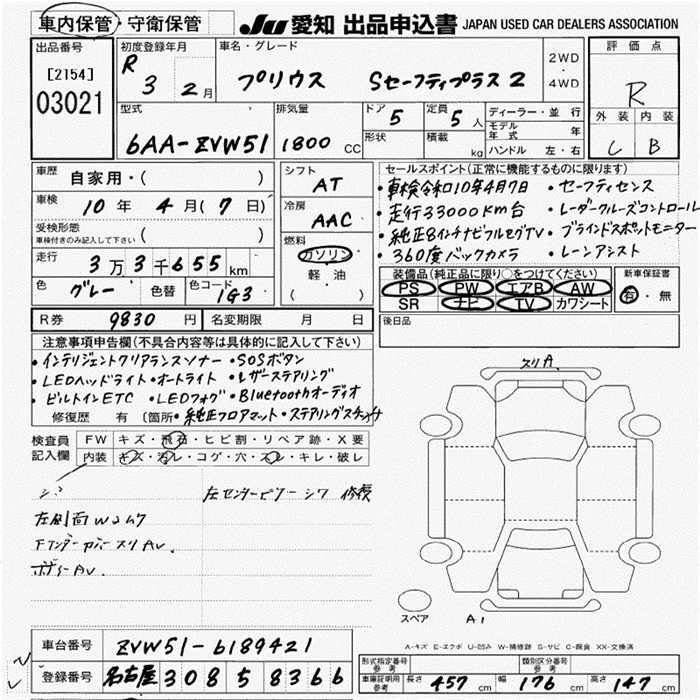 車内保管・守衛保管
JU 愛知 出品申込書 JAPAN USED CAR DEALERS ASSOCIATION
出品番号
[2154]
03021
初度登録年月
R 3 2月
車名・グレード
プリウス Sセーフティプラス2
2WD
・
4WD
評価点
R
外装 内装
C B
型式
6AA-ZVW51
排気量
1800 CC
ドア
5
定員
5人
形状
積載
kg
ディーラー・並行
モデル年式 年
ハンドル 左・右
車歴
自家用・( )
車検
10年 4月(7日)
受検形態
車検付きのみ記入して下さい ( )
走行
3万3千655km
色
グレー
色替
色コード
1G3
シフト
AT
冷房
AAC
燃料
ガソリン
軽・油
( )
セールスポイント(正常に機能するものに限ります)
・車検令和10年4月7日 ・セーフティセンス
・走行33000KM台 ・レーダークルーズコントロール
・純正8インチナビフルセグTV ・ブラインドスポットモニター
・360度バックカメラ ・レーンアシスト
装備品(純正品に限り○をつけてください)
PS PW エアB AW
SR ナビ TV カワシート
新車保証書
有・無
R券 9830円
名変期限 月 日
後日品
注意事項申告欄(不具合内容等は具体的に記入して下さい)
・インテリジェントクリアランスソナー ・SOSボタン
・LEDヘッドライト ・オートライト ・レザーステアリング
・ビルトインETC ・LEDフォグ ・Bluetoothオーディオ
修復歴 有 〔箇所 ・純正フロアマット ・ステアリングスイッチ
検査員
記入欄
FW キズ・飛石・ヒビ割・リペア跡・X要
内装 キズ・汚レ・コゲ・穴・スレ・キレ・破レ
左センターピラー シワ 修復
左側面W2ムラ
Fアンダーカバースリ AV.
ボディAV
スリA.
スペア
A1
A-キズ E-エクボ U-凹み W-補修跡 S-サビ C-腐食 XX-交換済
車台番号
ZVW51-6189421
登録番号
名古屋 308 5 8366
形式指定番号
参考
類別区分番号
参考
車庫証明用
参考
長さ 457cm
幅 176cm
高さ 147cm